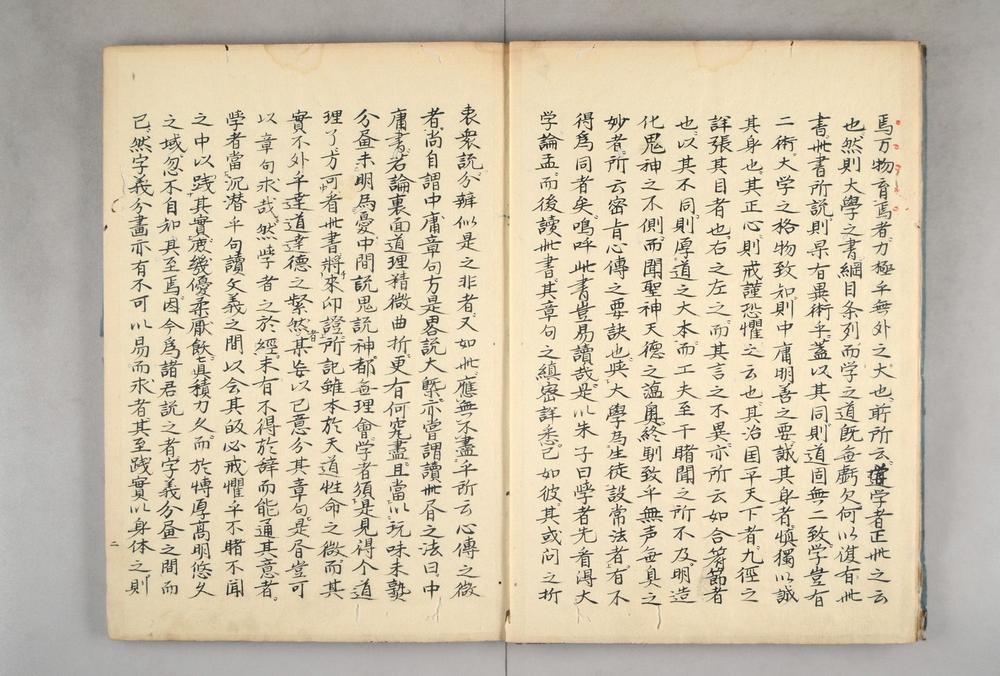 焉万物育焉者力極乎無外之大也前所云道学者正此之云
也然則大學之書綱目条列而学之道既毎虧欠何以復有此
書此書所説則果有異術乎蓋以其同則道固無二致学豈有
二術大学之格物致知則中庸明善之要誠其身者慎獨以誠
其身也其正心則戒謹恐懼之云也其治国平天下者九経之
詳張其目者也右之左之而其言之不異亦所云如合符節者
也以其不同則厚道之大本而工夫至于睹聞之所不及明造
化鬼神之不測而聞聖神天徳之蘊奥終馴致乎無声毎臭之
妙者所云密旨心傳之要訣也与大學為生徒設常法者有不
得為同者矣鳴呼此書豈易讀哉是以朱子曰学者先看得大
学論孟而後讀此書其章句之縝密詳悉已如彼其或問之折
衷衆説分辨似是之非者又如此應無不盡乎所云心傳之微
者尚自謂中庸章句方是畧説大槩亦嘗謂讀此昏之法曰中
庸書若論裏面道理精微曲折更有何究盡且當以玩味未熟
分昼未明為憂中間説鬼説神都毎理會学者須是見得个道
理了方可看此書將來印證所記雖本於天道性命之微而其
實不外乎達道達徳之緊然者某妄以已意分其章句是昏豈可
以章句求哉然学者之於經未有不得於辞而能通其意者
學者當沉潜乎句讀文義之間以会其皈必戒懼乎不睹不聞
之中以践其實庶幾優柔厭飫真積力久而於博厚高明悠久
之域忽不自知其至焉因今為諸君説之者字義分昼之間而
已然字義分畫亦有不可以易而求者其至践實以身体之則
二